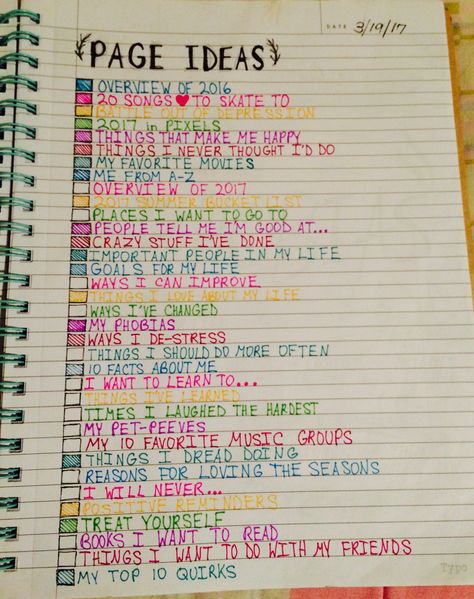 DATE 3/19/17
PAGE IDEAS
OVERVIEW OF 2016
20 SONGS ♥ TO SKATE TO
BATTLE OUT OF DEPRESSION
2017 in PIXELS
THINGS THAT MAKE ME HAPPY
THINGS I NEVER THOUGHT I'D DO
MY FAVORITE MOVIES
ME FROM A-Z
OVERVIEW OF 2017
2017 SUMMER BUCKET LIST
PLACES I WANT TO GO TO
PEOPLE TELL ME I'M GOOD AT...
CRAZY STUFF I'VE DONE
IMPORTANT PEOPLE IN MY LIFE
GOALS FOR MY LIFE
WAYS I CAN IMPROVE
THINGS I LOVE ABOUT MY LIFE
WAYS I'VE CHANGED
MY PHOBIAS
WAYS I DE-STRESS
THINGS I SHOULD DO MORE OFTEN
10 FACTS ABOUT ME
I WANT TO LEARN TO...
THINGS I'VE LEARNED
TIMES I LAUGHED THE HARDEST
MY PET-PEEVES
MY 10 FAVORITE MUSIC GROUPS
THINGS I DREAD DOING
REASONS FOR LOVING THE SEASONS
I WILL NEVER...
POSITIVE REMINDERS
TREAT YOURSELF
BOOKS I WANT TO READ
THINGS I WANT TO DO WITH MY FRIENDS
MY TOP 10 QUIRKS
Typo